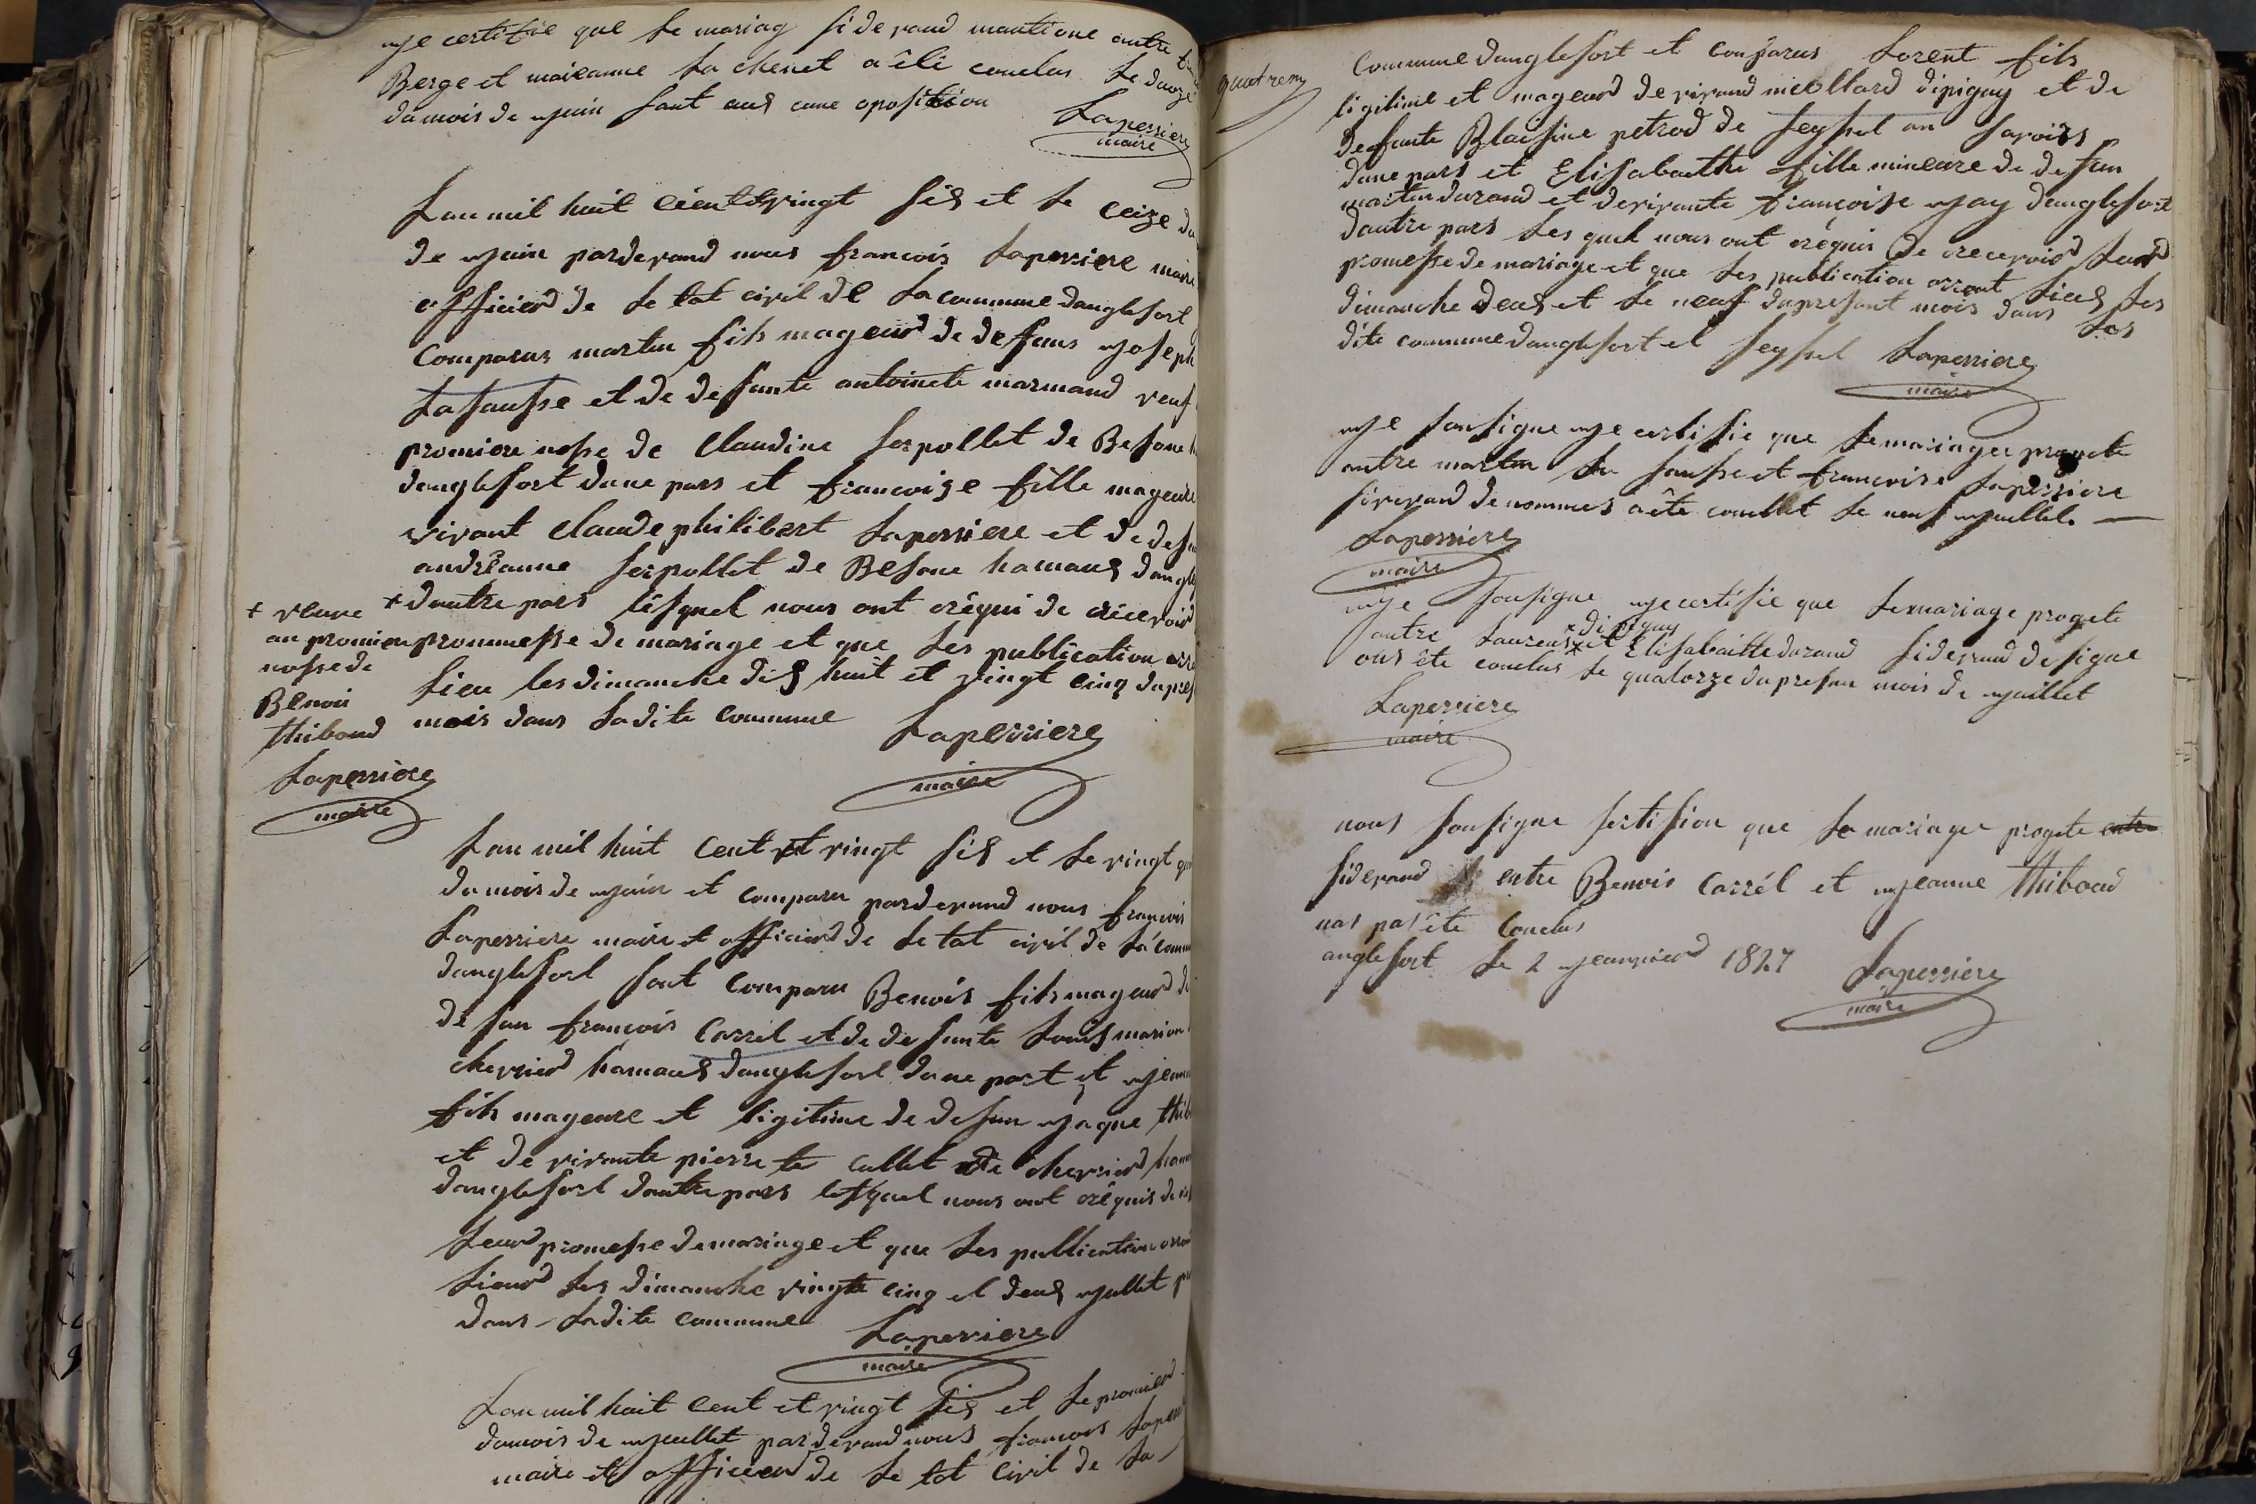 je certifie que le mariag si devand mantione autre
Berge et maieanne La chenet a êté conclus le douze
du mois de juin sant aud cune oposition
Laperriere
maire
Lan mil huit cient et vingt siS et le ceize du
de juin pardevand nous francois Laperriere maire
officierd de le tat civil de La commune danglefort
Comparus martin fils mageurd de deffuns joseph
La sausse et de defunte antoinete marmand veuf
promiere nosse de Claudine serpollet de Besone
danglefort dune pars et francoize fille mageure
vivant claude philibert Laperriere et de
andréanne serpollet de Besone hamaus
+ dautre pars lésquel nous ont réqui de récevoird
prommesse de mariage et que les publication
lieu les dimanche diS huit et vingt cinq
mois dans La dite commune
Laperriere
maire
+ veuve
an promieu
nosse de
Benoi
thiboud
Laperriere
maire
Lan mil huit cent et vingt siS et le vingt
du mois de juin et comparu pardevand nous francois
Laperriere maire et officierd de le tat civil de La
danglefort sont comparu Benois fils mageurd
défun francois Carrel et de défunte Louis marion
chevrierd hamaus danglefort dune part et
fils mageure et ligitime de defun jaque
et de vivante pierrete callet de chevrierd
danglefort dautre pars lesquel nous ont réquis de
Leurd promesse de mariage et que les publication
Lieurd les dimanche vingte cinq et deus jullet
dans La dite commune
Laperriere
maire
Lan mil huit cent et vingt siS et le promierd
du mois de juellet par devand nous francois
maire et officierd de le tat civil de La
quatreny
Commune danglefort et comparus Lorent fils
ligitime et mageurd de vivand miellard dipigny et de
defunte Blaisine petrod de seyssel an savoies
dune pars et Elisabaethe fille mineure de defun
martin durand et de vivante francoise jay danglefort
dautre pars les quel nous ont réquis de recevoird leurd
promesse de mariage et que les publication orront lieus les
dimanche deus et le neuf du presant mois dans les
dite commune danglefort et seyssel
Laperriere
maire
je sousigne je certifie que le mariages progete
autre martin La sausse et francoise Laperriere
si devand de nommés a êté conclut le neuf juellet
Laperriere
maire
je sousigne je certifie que le mariage progete
+ dipigny
autre Laurens + et Elisabaitte durand si devand desigue
ons été conclus le quatorze du presan mois de juillet
Laperriere
maire
nous sousigne sertifion que le mariages progete entre
sidevand entre Benois Carrél et jeanne thiboud
nas pas été conclus
anglefort le 2 jeanvierd 1827
Laperriere
maire